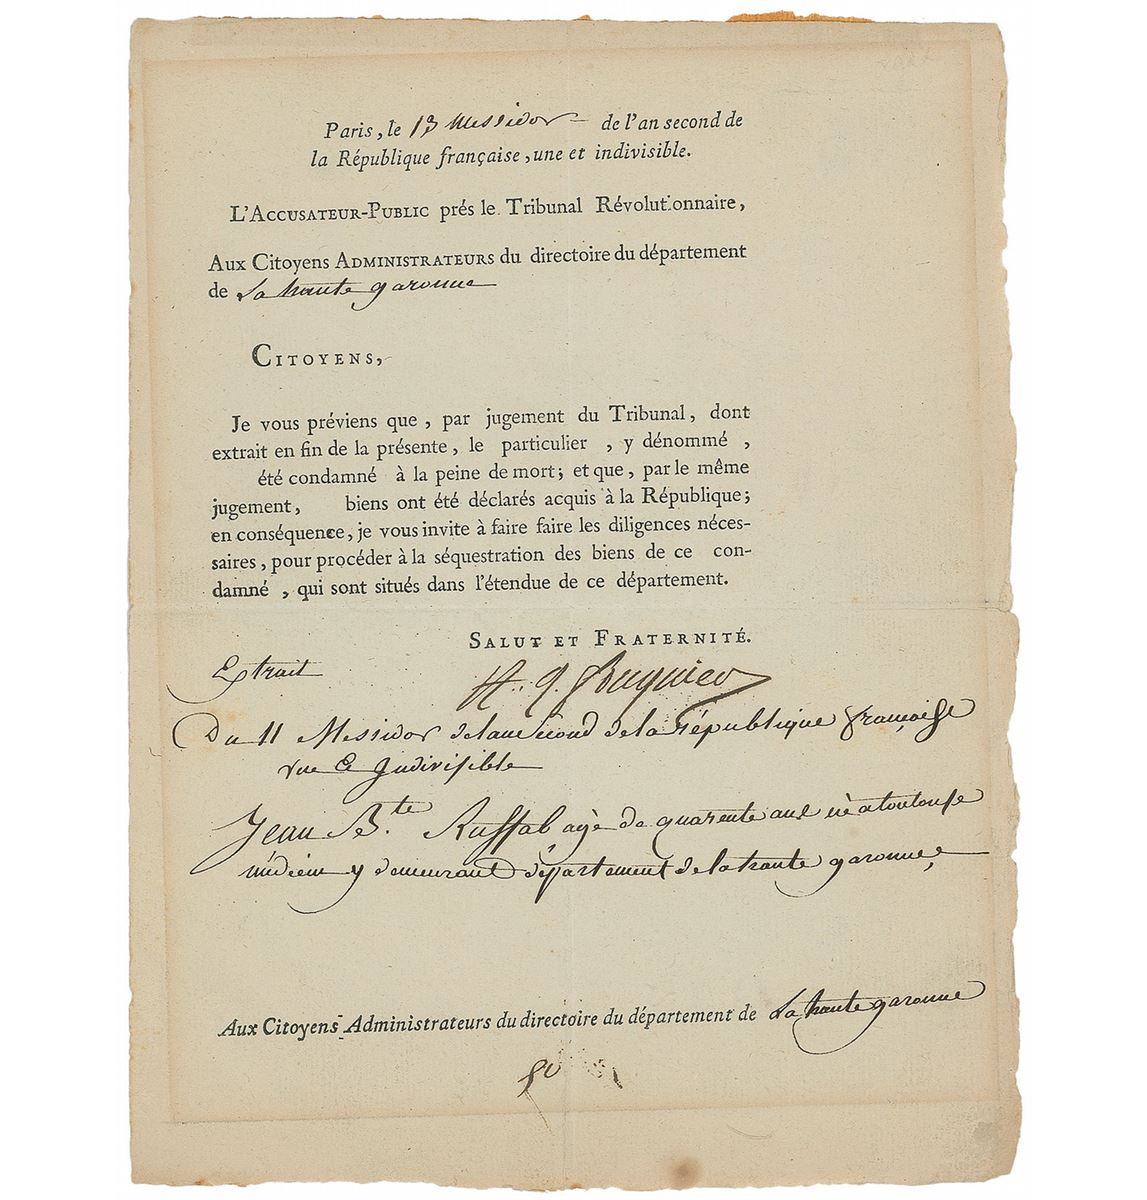 Paris, le 13 Messidor de l'an second de
la République française, une et indivisible.
L'ACCUSATEUR-PUBLIC prés le Tribunal Révolutionnaire,
Aux Citoyens ADMINISTRATEURS du directoire du département
de La haute garonne
CITOYENS,
Je vous préviens que, par jugement du Tribunal, dont
extrait en fin de la présente, le particulier , y dénommé ,
été condamné à la peine de mort; et que, par le même
jugement, biens ont été déclarés acquis à la République;
en conséquence, je vous invite à faire faire les diligences néces-
saires, pour procéder à la séquestration des biens de ce con-
damné , qui sont situés dans l'étendue de ce département.
SALUT ET FRATERNITÉ.
Extrait
Du 11 Messidor de lan second de la république françoise
une et Indivisible
Jean B.te Russal agé de quarente ans né a toulouse
médecin y demeurant département de la haute garonne,
Aux Citoyens Administrateurs du directoire du département de La haute garonne